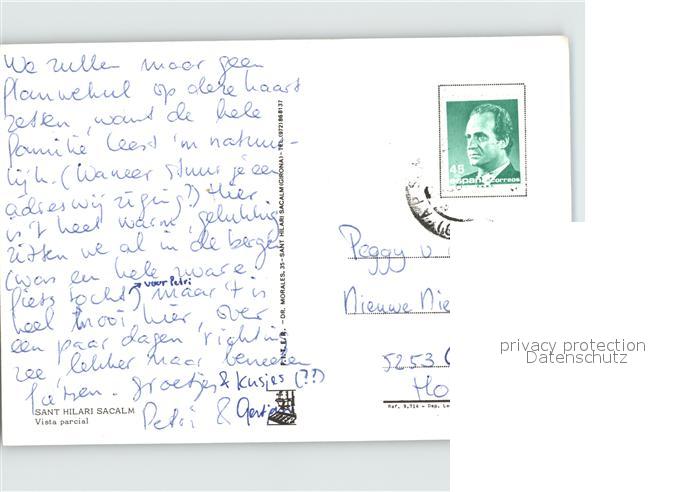 We zullen maar geen
flauwekul op deze kaart
zetten, want de hele
familie leest 'm natuur-
lijk. (Wanneer stuur je een
adreswijziging?) Hier
is 't heel warm, gelukkig
zitten we al in de bergen
(was een hele zware
→ voor Petri
fiets tocht) maar 't is
heel mooi hier, over
een paar dagen richting
zee, lekker naar beneden
fietsen. Groetjes & kusjes (??)
Petri &
SANT HILARI SACALM
Vista parcial
- DR. MORALES, 35 - SANT HILARI SACALM (GIRONA) - TEL. (972) 868137
45
España correos
Peggy v
Nieuwe Nie
5253
Ho
Ref. 9.714 - Dep. Le
privacy protection
Datenschutz